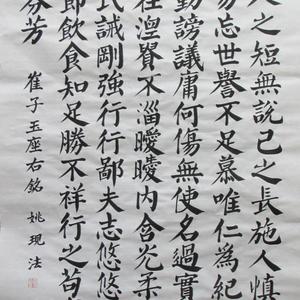 人之短無說己之長施人慎
勿忘世譽不足慕唯仁為紀
動謗議庸何傷無使名過實
在涅貴不淄曖曖內含光柔
氏誡剛強行行鄙夫志悠悠
節飲食知足勝不祥行之苟
芬芳
崔子玉座右銘 姚現法